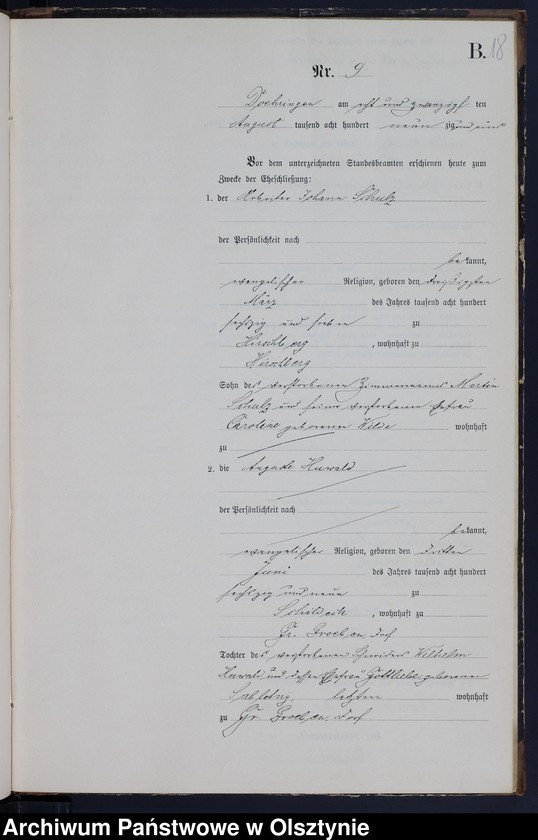 B. 18
Nr. 9
Doehringen am acht und zwanzigsten
August tausend acht hundert neunzig und eins
Vor dem unterzeichneten Standesbeamten erschienen heute zum
Zwecke der Eheschließung:
1. der Arbeiter Johann Schulz
der Persönlichkeit nach
bekannt,
evangelischer Religion, geboren den dreißigsten
März des Jahres tausend acht hundert
sechszig und sieben zu
Hirschberg, wohnhaft zu
Hirschberg
Sohn des verstorbenen Zimmermanns Martin
Schulz und seiner verstorbenen Ehefrau
Caroline geborenen Wilde wohnhaft
zu
2. die Auguste Huwald
der Persönlichkeit nach
bekannt,
evangelischer Religion, geboren den dritten
Juni des Jahres tausend acht hundert
sechszig und neun zu
Schildeck, wohnhaft zu
Gr. dorf
Tochter des verstorbenen Schneiders Wilhelm
Huwald und dessen Ehefrau Gottliebe geborenen
letztere wohnhaft
zu Gr. dorf
Archiwum Państwowe w Olsztynie